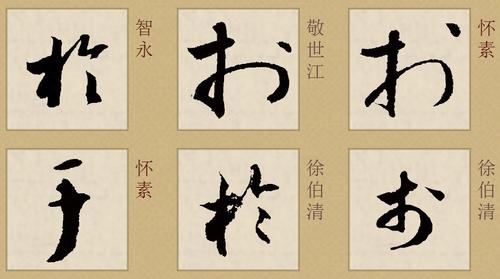 於
智永
於
敬世江
於
怀素
于
怀素
於
徐伯清
於
徐伯清